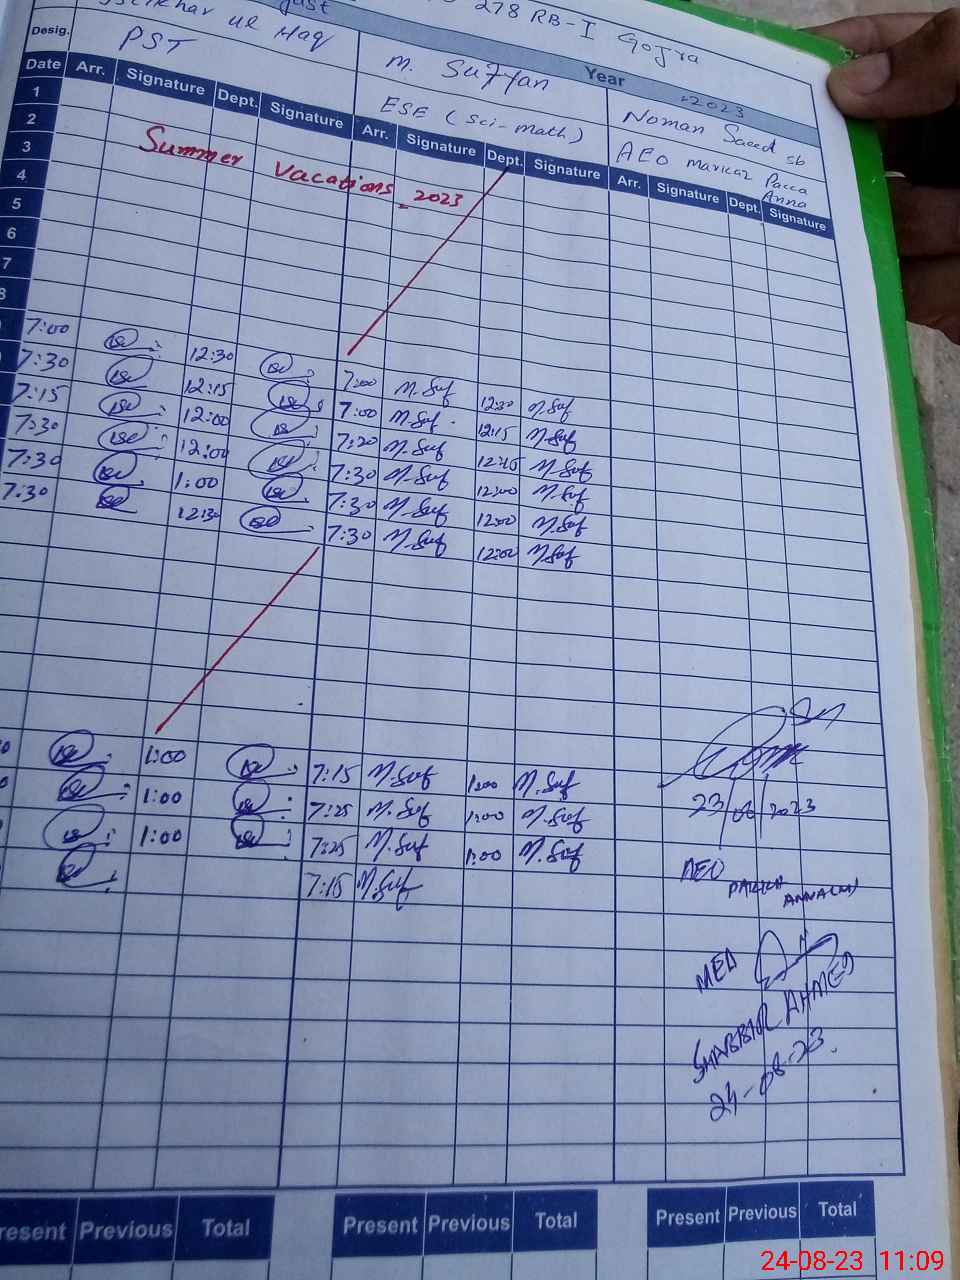 278 RB-I Gojra
Year 2023
ul Haq
M. Sufyan
Noman Saeed sb
Desig. PST
ESE (Sci-math)
AEO markaz Pacca Anna
Date Arr. Signature Dept. Signature Arr. Signature Dept. Signature Arr. Signature Dept. Signature
1
2
3
4
5
6
7
8
Summer Vacations 2023
7:00 12:30 7:00 M.Suf 12:30 M.Suf
7:30 12:15 7:00 M.Suf 12:15 M.Suf
7:15 12:00 7:20 M.Suf 12:15 M.Suf
7:30 12:00 7:30 M.Suf 12:00 M.Suf
7:30 1:00 7:30 M.Suf 12:00 M.Suf
7:30 12:30 7:30 M.Suf 12:00 M.Suf
1:00 7:15 M.Suf 1:00 M.Suf
1:00 7:25 M.Suf 1:00 M.Suf
1:00 7:25 M.Suf 1:00 M.Suf
7:15 M.Suf
23/08/2023
AEO
MEA
SHABBIR AHMED
24-08-23
Present Previous Total Present Previous Total Present Previous Total
24-08-23 11:09